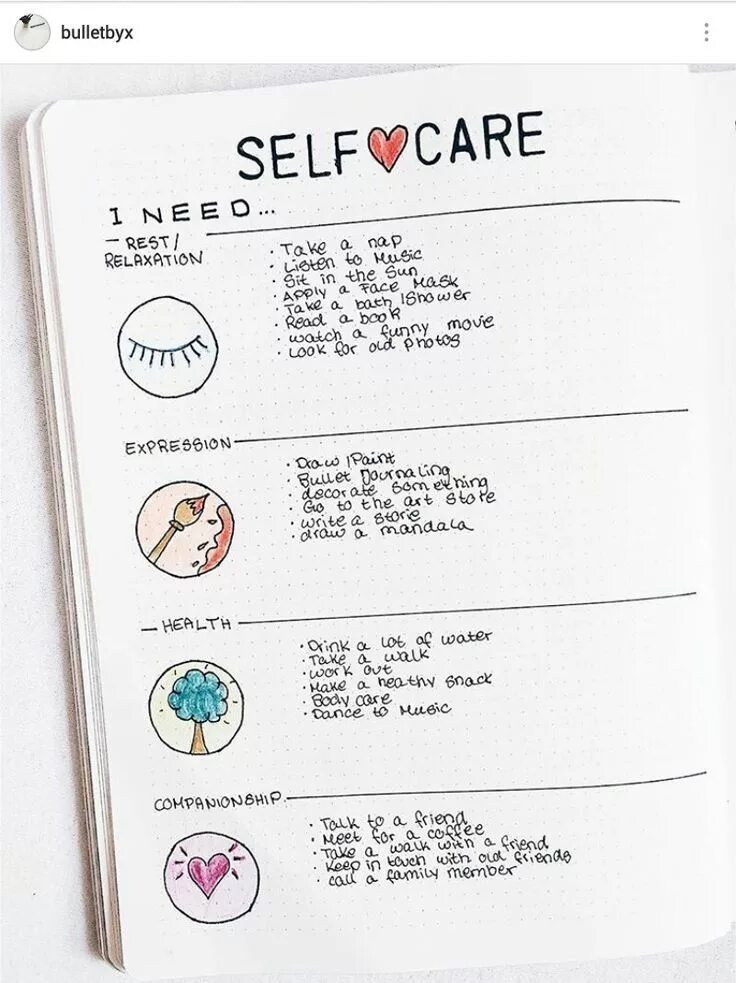 bulletbyx
SELF CARE
I NEED...
- REST/
RELAXATION
· Take a nap
· Listen to Music
· Sit in the Sun
· Apply a Face Mask
· Take a bath /Shower
· Read a book
· watch a funny movie
· Look for old photos
EXPRESSION
· Draw /Paint
· Bullet Journaling
· decorate something
· Go to the art Store
· write a Storie
· draw a mandala
- HEALTH
· Drink a lot of water
· Take a walk
· work out
· Make a heathy snack
· Body care
· Dance to Music
COMPANIONSHIP
· Talk to a friend
· Meet for a coffee
· Take a walk with a friend
· Keep in touch with old friends
· call a family member